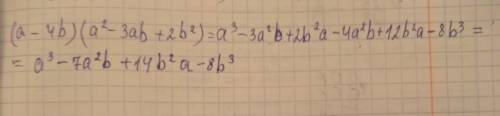 (a - 4b)(a² - 3ab + 2b²) = a³ - 3a²b + 2b²a - 4a²b + 12b²a - 8b³ =
= a³ - 7a²b + 14b²a - 8b³